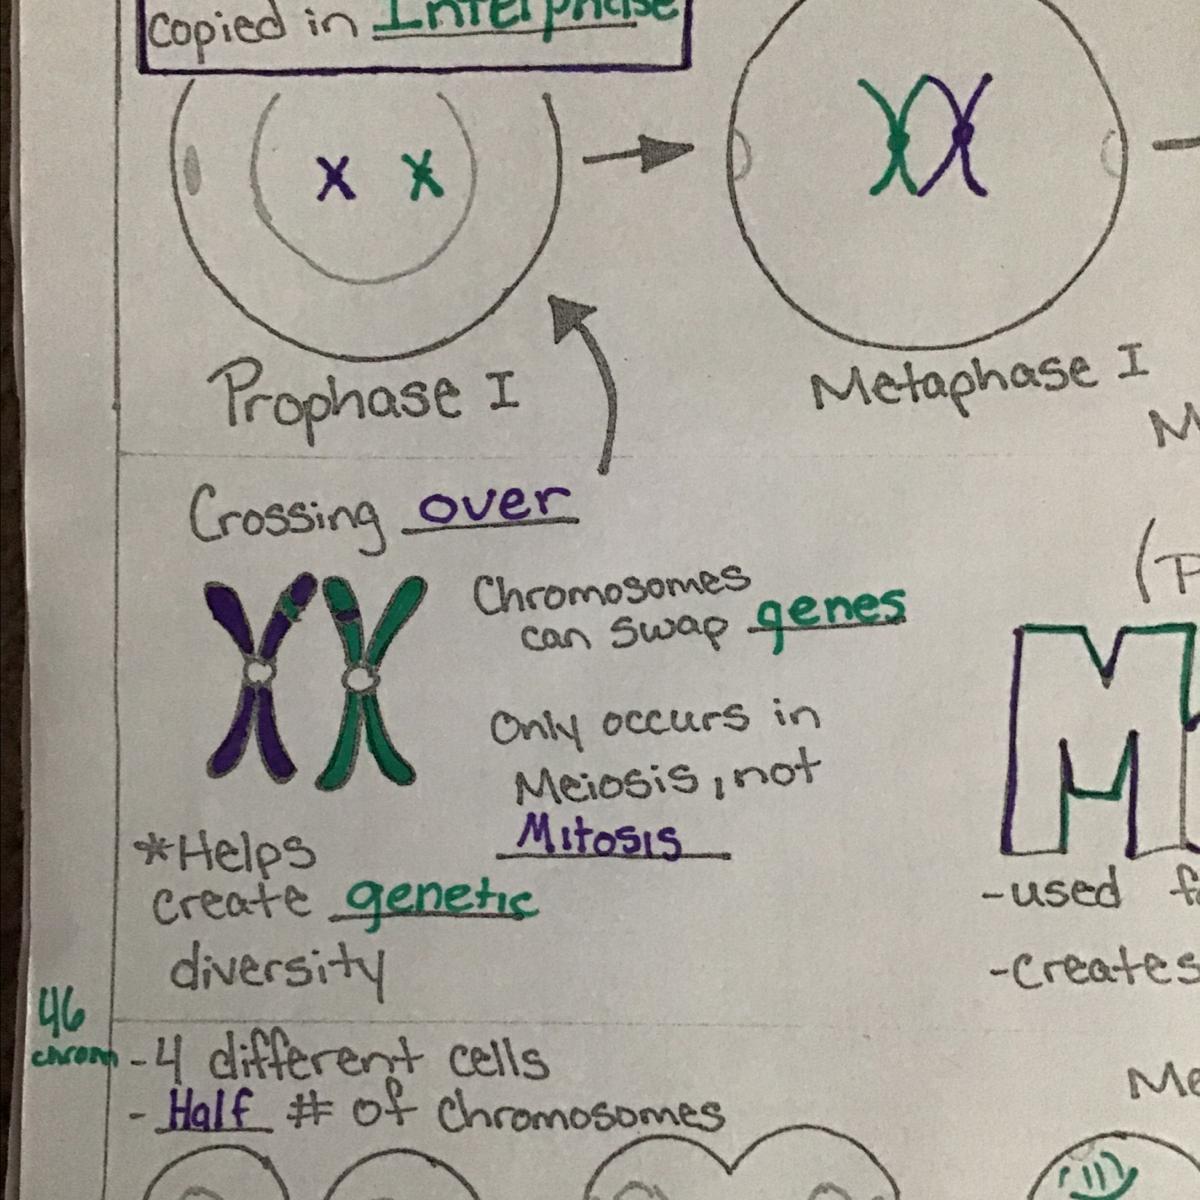 copied in Interphase
Prophase I
Metaphase I
M
Crossing over
Chromosomes
can swap genes
(P
Only occurs in
Meiosis, not
Mitosis
*Helps
create genetic
diversity
M
-used
-creates
46
chrom
-4 different cells
- Half # of chromosomes
Me